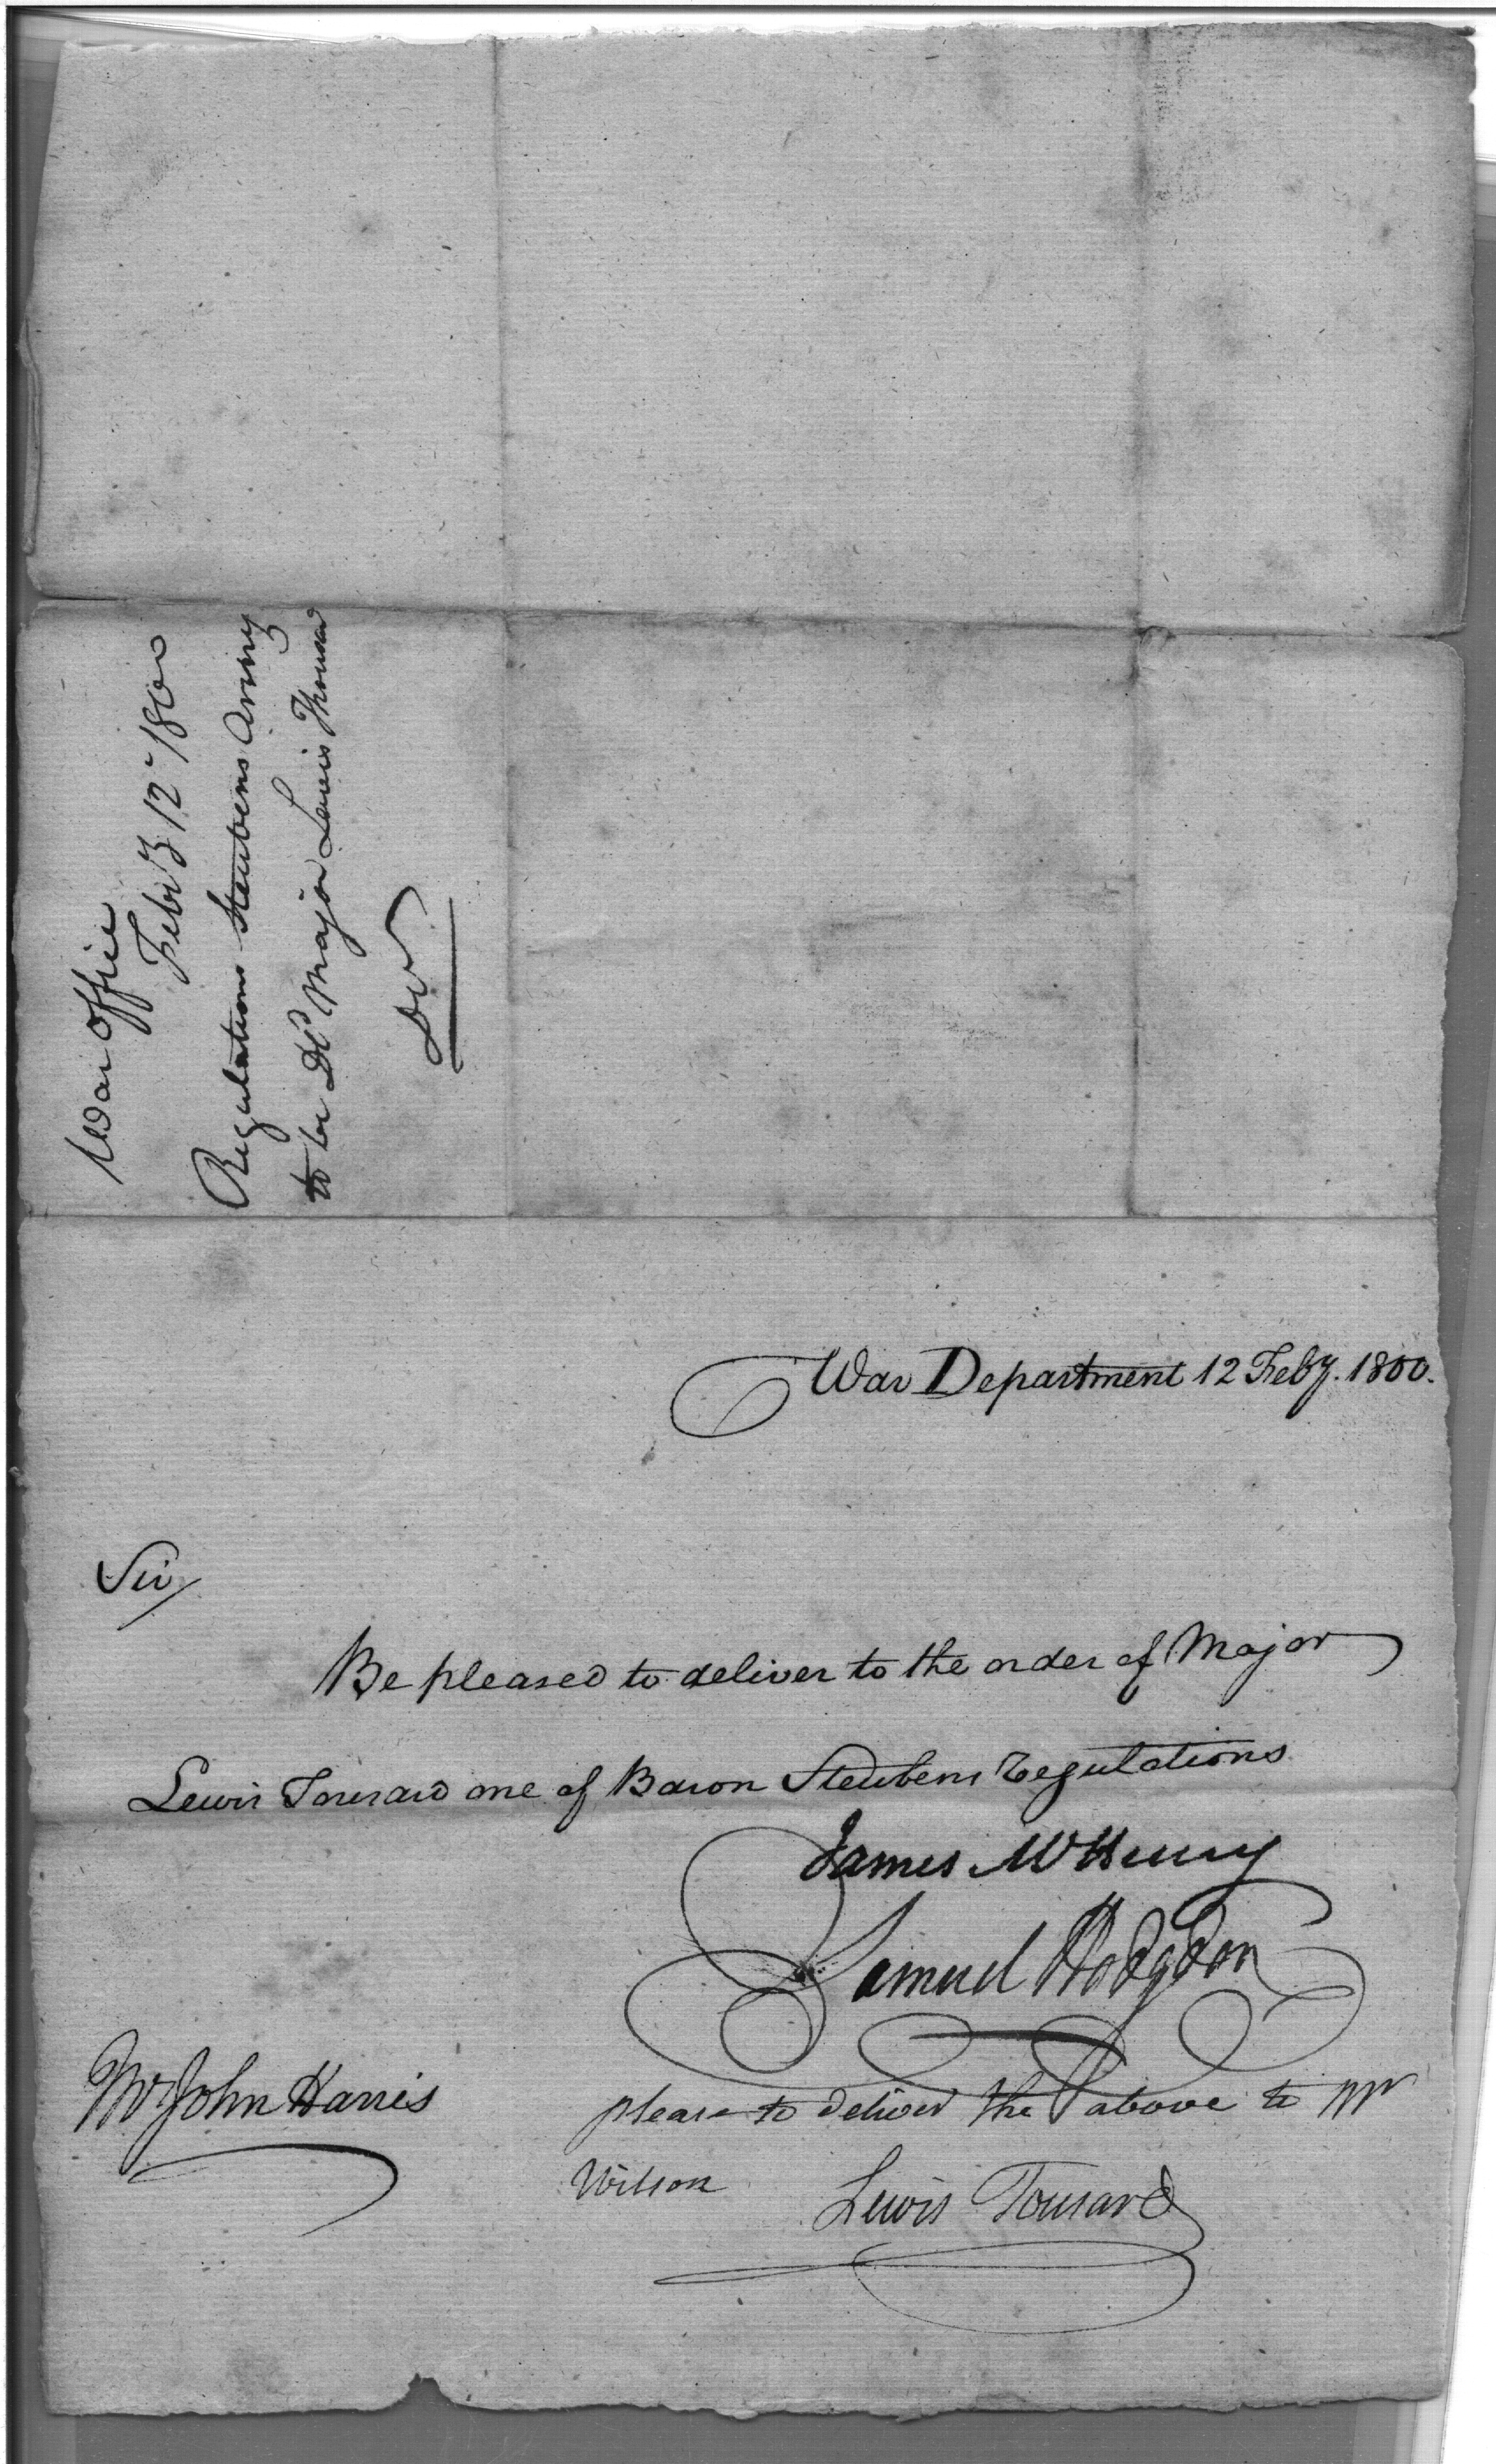 War Office
Feby 12 1800
Regulations Steubens Army
to be Dd Major Lewis Thousard
War Department 12 Feby. 1800.
Sir/
Be pleased to deliver to the order of Major
Lewis Tousard one of Baron Steubens regulations
James McHenry
Samuel Hodgdon
Mr John Harris
please to deliver the above to Mr
Wilson Lewis Tousard